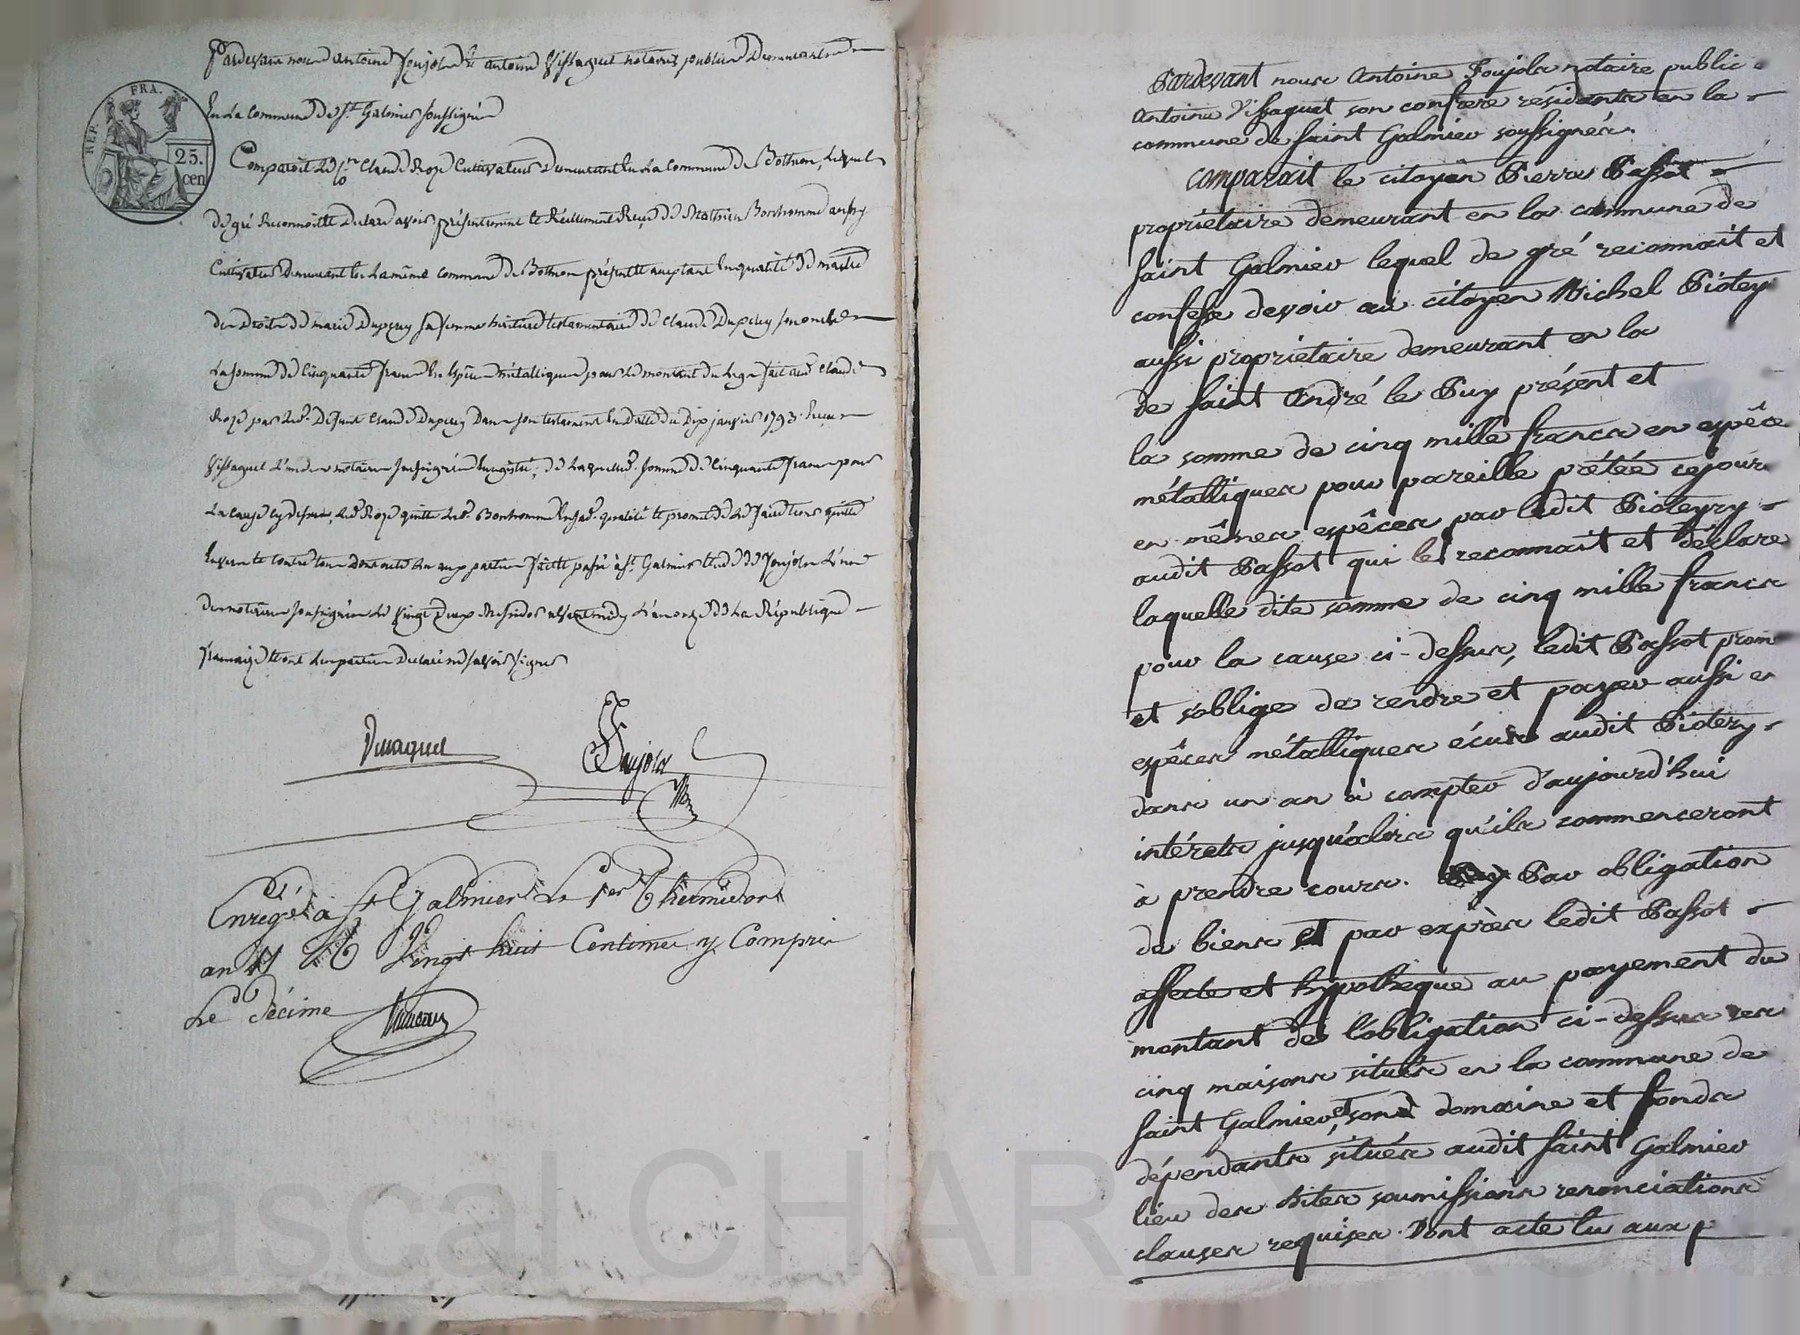 Pardevant nous Antoine Foujols & Antoine Vissaguet notaires publics demeurants
En la commune de St Galmier soussignés
Comparoit le Cen Claude Roze Cultivateur demeurant en la commune de Bothéon, lequel
de gré reconnoit & declare avoir présentement & réellement reçu de Mathieu Bonhomme aussy
Cultivateur demeurant en la même commune de Bothéon présent & acceptant en qualité de maître
des droits de marie Dupuy sa femme héritière testamentaire de Claude Dupuy son oncle
La somme de Cinquante francs en espèces métalliques pour le montant du legs fait aud. Claude
Roze par led. défunt Claude Dupuy dans son testament en datte du dix janvier 1793 reçu
Vissaguet l'un des notaires soussignés enregistré, de laquelle somme de Cinquante francs pour
La cause cy dessus, led. Roze quitte led. Bonhomme en sad. qualité & promet de le faire tenir quitte
Envers & contre tous dont acte lu aux parties fait & passé à St Galmier étude de Foujols l'un
des notaires soussignés le vingt deux Messidor l'an onze de la République
française & ont les parties declaré ne savoir signer
Vissaguet Foujols
REP. FRA.
25. cen
Enrégé à St Galmier Le 1er Thermidor
an 11 Vingt huit Centimes y Compris
Le Décime
Pardevant nous Antoine Foujols notaire public
Antoine Vissaguet son confrere résidants en la
commune de Saint Galmier soussignés.
comparait le citoyen Pierre Passot
propriétaire demeurant en la commune de
Saint Galmier lequel de gré reconnait et
confesse devoir au citoyen Michel Pioteyry
aussi proprietaire demeurant en la
de Saint André le Puy présent et
la somme de cinq mille francs en espêces
métalliques pour pareille prétée cejour
en mêmes espêces par ledit Pioteyry
audit Passot qui le reconnait et déclare
laquelle dite somme de cinq mille francs
pour la cause ci-dessus, ledit Passot prom
et s'oblige de rendre et payer aussi en
espêces métalliques écus audit Pioteyry
dans un an à compter d'aujourd'hui
intérets jusqu'alors qu'ils commenceront
à prendre cours. Par obligation
de biens et par exprès ledit Passot
affecte et hypothèque au payement du
montant de l'obligation ci-dessus ses
cinq maisons situées en la commune de
Saint Galmier, et son domaine et fonds
dépendants situés audit Saint Galmier
lieu des Hites soumissions renonciations
clauses requises. Dont acte lu aux p
Pascal CHAR